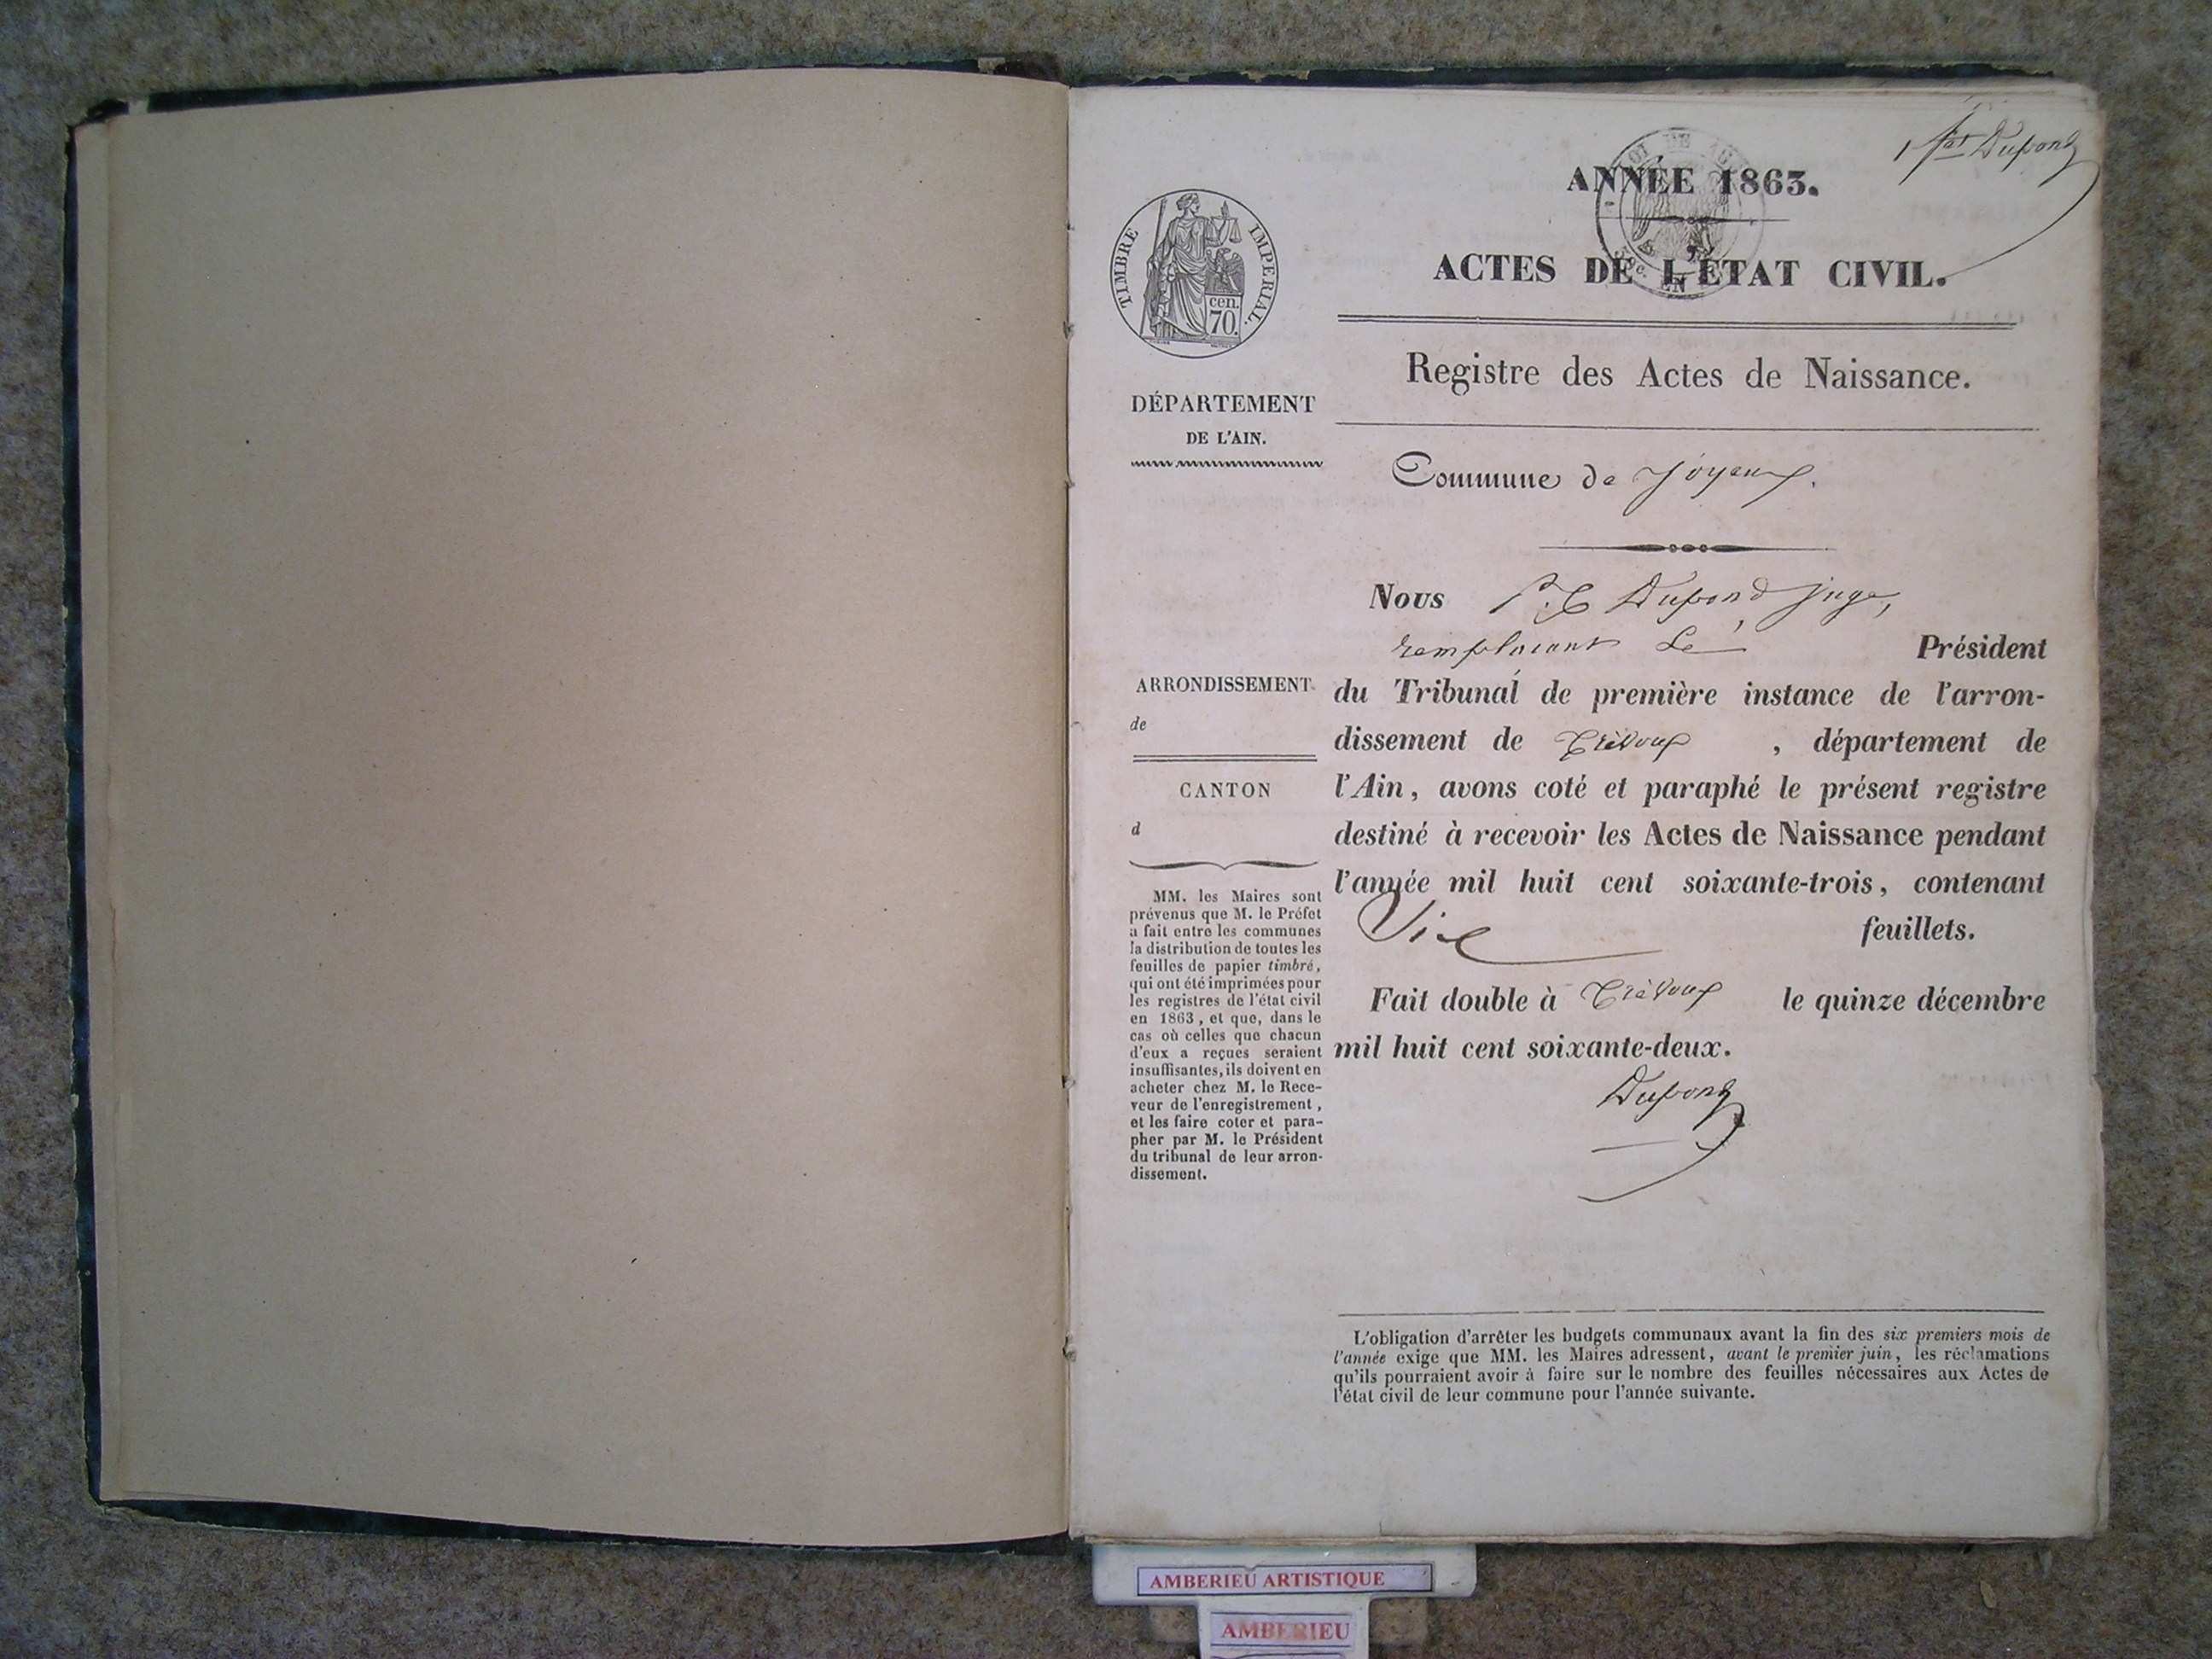 1 fet Dupond
ANNÉE 1863.
ACTES DE L'ÉTAT CIVIL.
Registre des Actes de Naissance.
TIMBRE IMPERIAL.
cen.
70.
DÉPARTEMENT
DE L'AIN.
Commune de Joyeux.
Nous P. C Dupond juge,
remplacant Le Président
du Tribunal de première instance de l'arron-
dissement de Trévoux , département de
l'Ain, avons coté et paraphé le présent registre
destiné à recevoir les Actes de Naissance pendant
l'année mil huit cent soixante-trois, contenant
Six feuillets.
Fait double à Trévoux le quinze décembre
mil huit cent soixante-deux.
Dupond
ARRONDISSEMENT
de
CANTON
d
MM. les Maires sont
prévenus que M. le Préfet
a fait entre les communes
la distribution de toutes les
feuilles de papier timbré,
qui ont été imprimées pour
les registres de l'état civil
en 1863, et que, dans le
cas où celles que chacun
d'eux a reçues seraient
insuffisantes, ils doivent en
acheter chez M. le Rece-
veur de l'enregistrement,
et les faire coter et para-
pher par M. le Président
du tribunal de leur arron-
dissement.
L'obligation d'arrêter les budgets communaux avant la fin des six premiers mois de
l'année exige que MM. les Maires adressent, avant le premier juin, les réclamations
qu'ils pourraient avoir à faire sur le nombre des feuilles nécessaires aux Actes de
l'état civil de leur commune pour l'année suivante.
AMBERIEU ARTISTIQUE
AMBERIEU